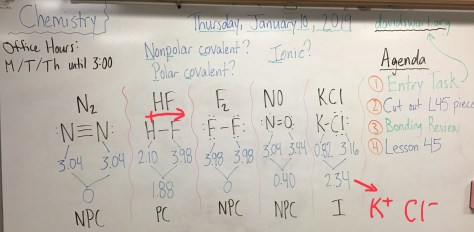 Chemistry
Thursday, January 10, 2019
Office Hours:
M/T/Th until 3:00
Nonpolar covalent?
Polar covalent?
Ionic?
Agenda
① Entry Task
② Cut out L45 pieces
③ Bonding Review
④ Lesson 45
N₂ HF F₂ NO KCl
:N≡N: H-F: :F-F: :N=O: K-Cl:
3.04 3.04 2.10 3.98 3.98 3.98 3.04 3.44 0.82 3.16
0 1.88 0 0.40 2.34
NPC PC NPC NPC I K⁺ Cl⁻